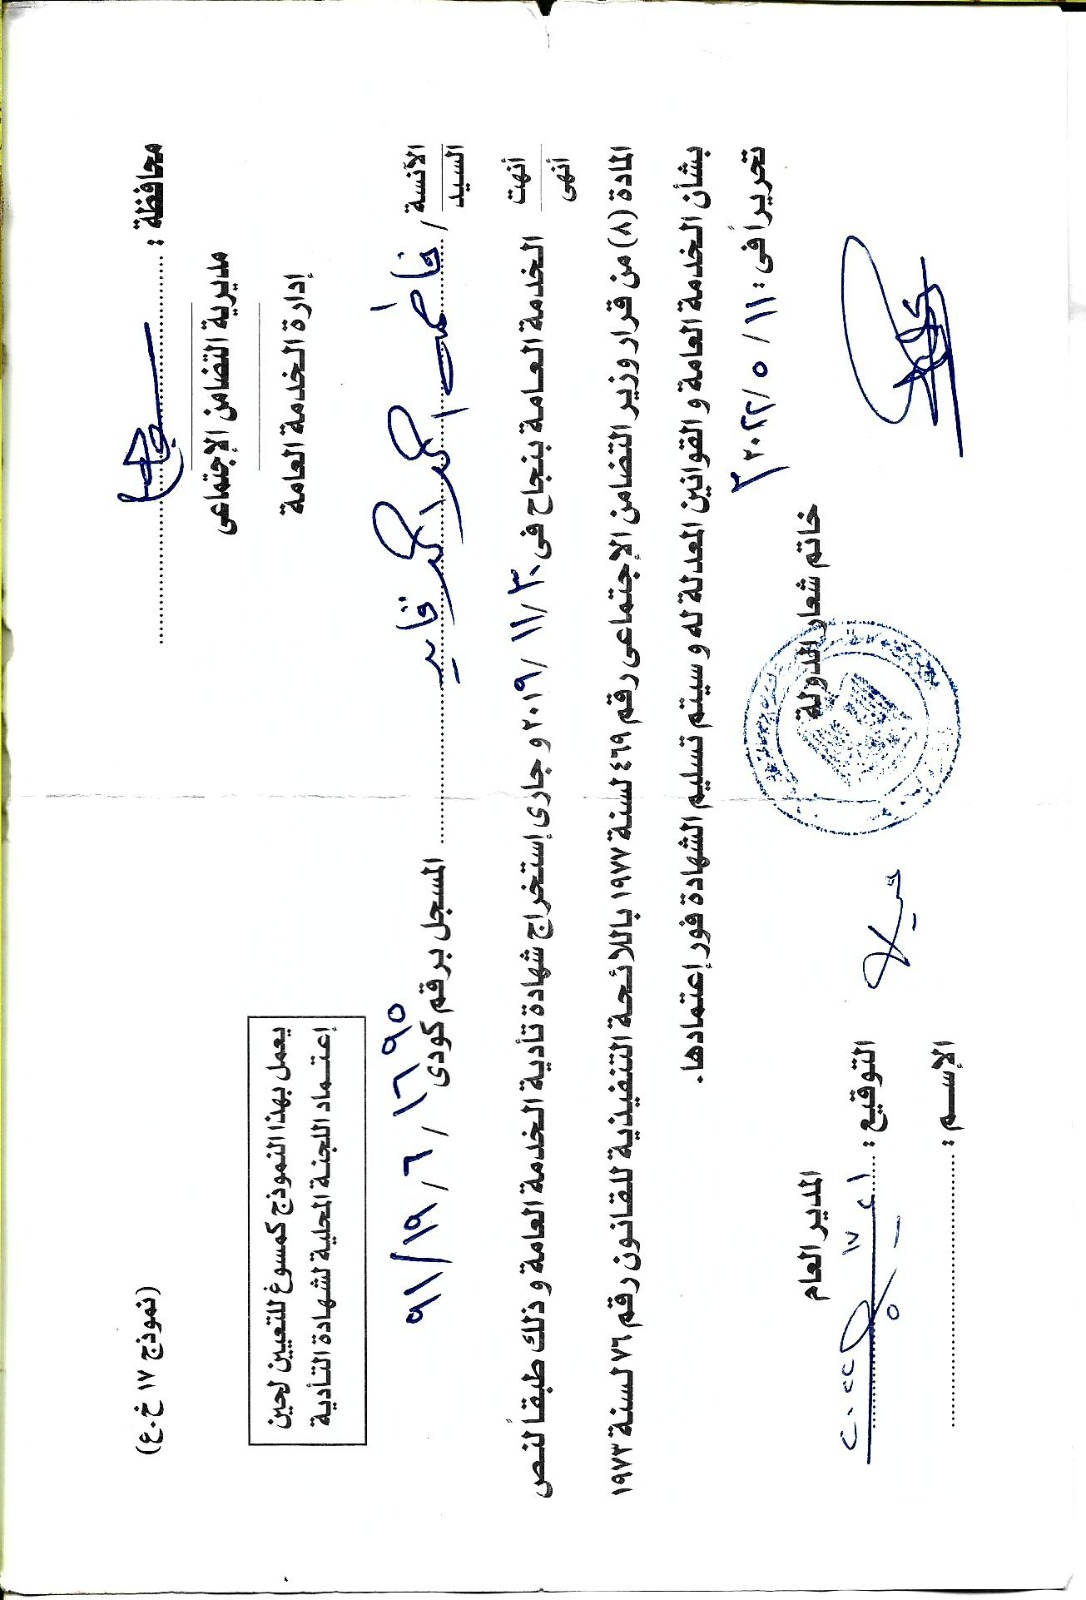 محافظة : سوهاج
(نموذج ١٧ خ.ع)
مديرية التضامن الإجتماعى
إدارة الخدمة العامة
يعمل بهذا النموذج كمسوغ للتعيين لحين
إعتماد اللجنة المحلية لشهادة التأدية
الآنسة / السيد / فاطمة احمد احمد قايد المسجل برقم كودى ١٦٩٥ / ٦ / ١٩ / ٩١
أنهت / أنهى الخدمة العامة بنجاح فى ٣٠ / ١١ / ٢٠١٩ و جارى إستخراج شهادة تأدية الخدمة العامة و ذلك طبقاً لنص
المادة (٨) من قرار وزير التضامن الإجتماعى رقم ٤٦٩ لسنة ١٩٧٧ باللائحة التنفيذية للقانون رقم ٧٦ لسنة ١٩٧٣
بشأن الخدمة العامة و القوانين المعدلة له و سيتم تسليم الشهادة فور إعتمادها.
تحريراً فى : ١١ / ٥ / ٢٠٢٢
خاتم شعار الدولة
المدير العام
التوقيع :
الإسم :